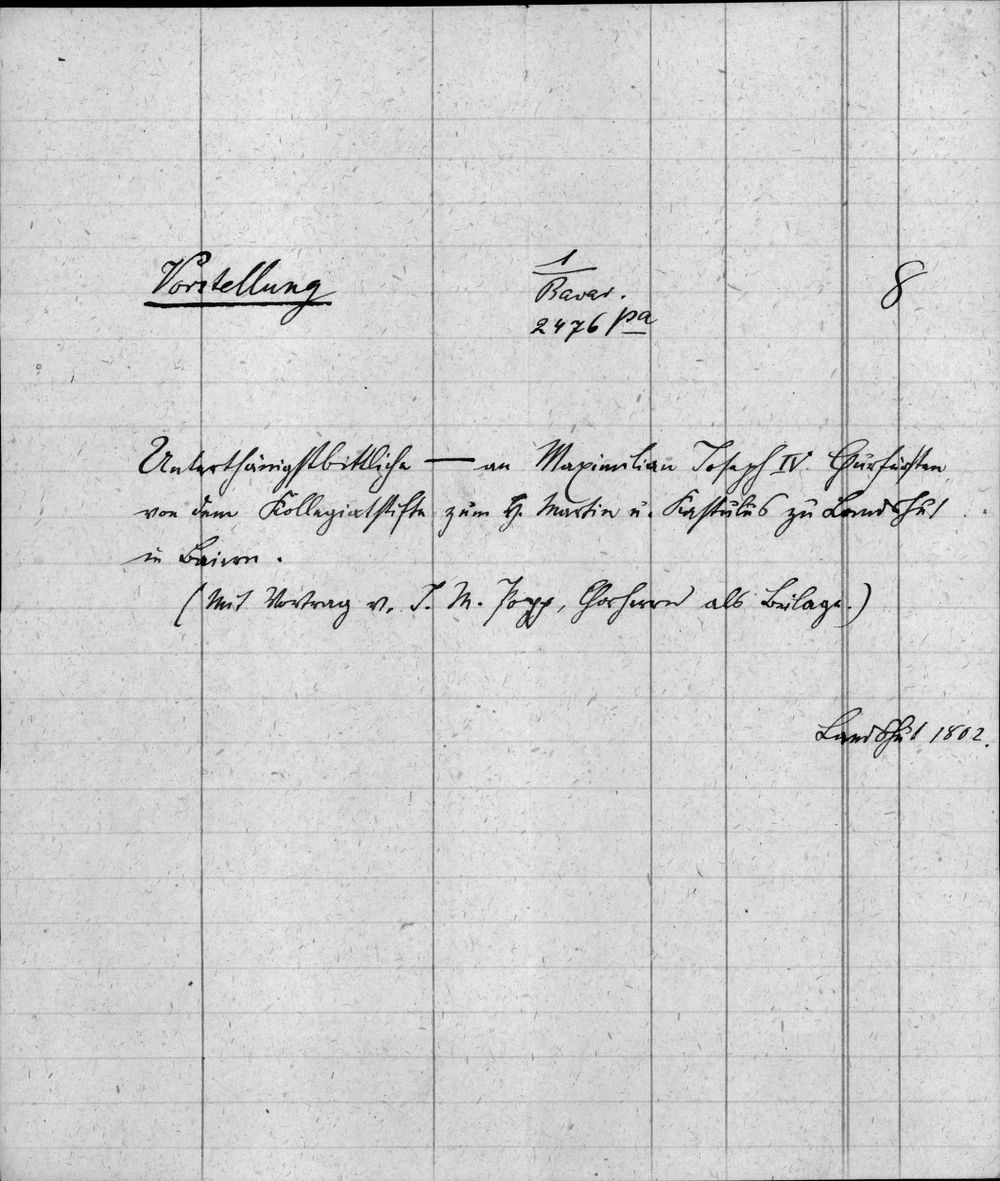 Vorstellung
1
Bavar.
2476 pa
8
Unterthänigstbittliche — an Maximilian Joseph IV. Churfürsten
von dem Kollegiatstifte zum H. Martin u. Kastulus zu Landshut
in Baiern.
(Mit Vortrag v. J. M. Popp, Chorherrn als Beilage.)
Landshut 1802.